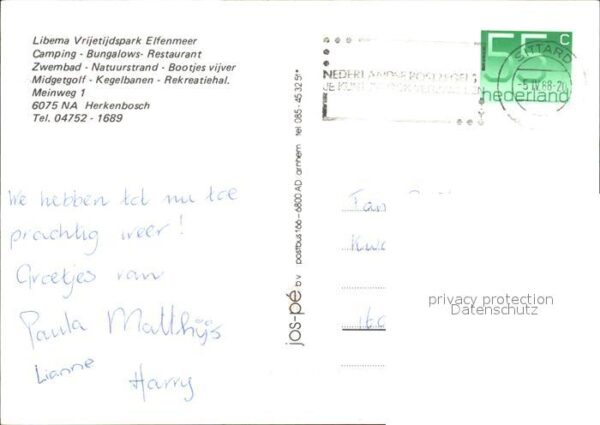 Libema Vrijetijdspark Elfenmeer
Camping - Bungalows- Restaurant
Zwembad - Natuurstrand - Bootjes vijver
Midgetgolf - Kegelbanen - Rekreatiehal.
Meinweg 1
6075 NA Herkenbosch
Tel. 04752 - 1689
We hebben tot nu toe
prachtig weer!
Groetjes van
Paula Matthijs
Lianne
Harry
jos-pé b.v. postbus 166-6800 AD arnhem tel 085-45 32 51*
NEDERLANDSE POSTZEGELS
JE KUNT ZE OOK VERZAMELEN
SITTARD
-5 IV 88-20
55 c
nederland
Fam
privacy protection
Datenschutz